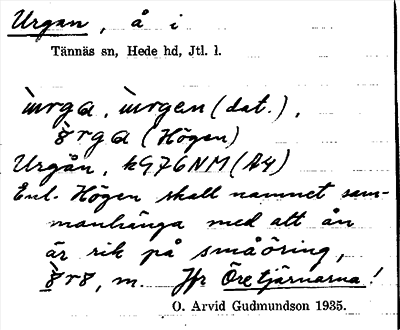 Urgan, å i
Tännäs sn, Hede hd, Jtl. l.
ùrga, ùrgen (dat.),
8̀rga (Högen)
Urgån, kG76NM (A4)
Enl. Högen skall namnet sam-
manhänga med att ån
är rik på småöring,
8̀r8, m. Jfr Öretjärnarna!
O. Arvid Gudmundson 1935.